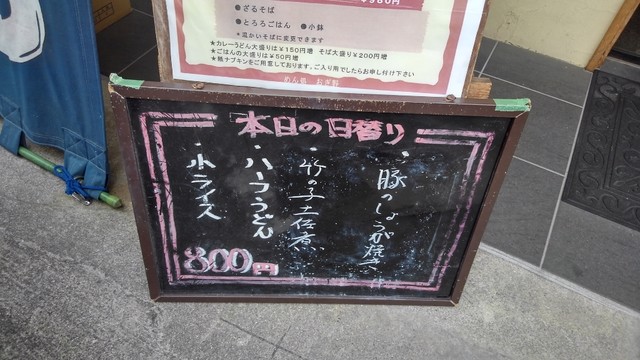 980円
●ざるそば
●とろろごはん ●小鉢
*温かいそばに変更できます
★カレーうどん大盛りは¥150円増 そば大盛り¥200円増
★ごはんの大盛り¥50円増
★紙ナプキンをご用意しております。ご入用でしたらお申し付け下さい
本日の日替り
・豚のしょうが焼き
・竹の子土佐煮
・ハーフうどん
・小ライス
800円